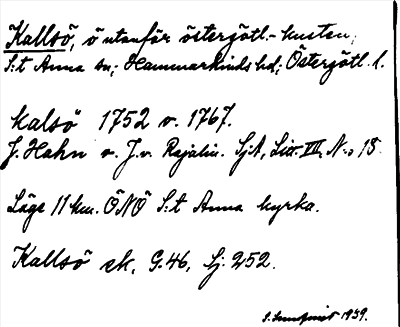 Kallsö, ö utanför östergötl.-kusten,
S:t Anna sn; Hammarkinds hd; Östergötl. l.
Kalsö 1752 o. 1767.
J. Hahn o. J. v. Rajalin. SjA, Litt. VIII, N:o 18.
Läge 11 km. ÖNÖ S:t Anna kyrka.
Kallsö ek. G.46, Sj. 252.
1939.